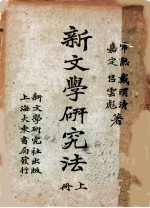 常熟 戴渭清
嘉定 呂雲彪 著
新文學研究法
上冊
新文學研究社出版
上海大東書局發行